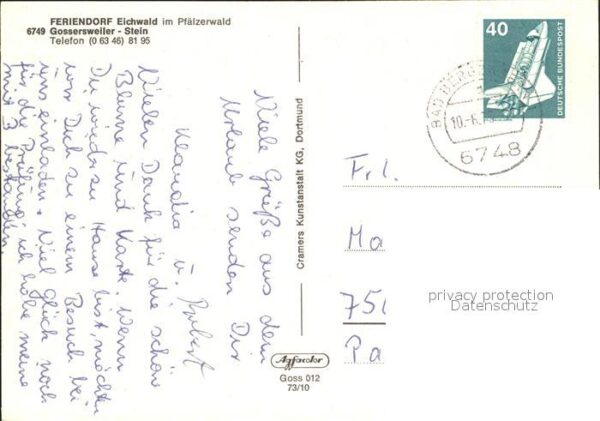 FERIENDORF Eichwald im Pfälzerwald
6749 Gossersweiler - Stein
Telefon (0 63 46) 81 95
Viele Grüße aus dem
Urlaub senden Dir
Klaudia u. Robert
Vielen Dank für die schöne
Blume und Karte. Wenn
Du wieder zu Hause bist, möchten
wir Dich zu einem Besuch bei
uns einladen. Viel Glück noch
für die Prüfung, ich habe meine
mit 3 bestanden.
Cramers Kunstanstalt KG, Dortmund
Agfacolor
Goss 012
73/10
40
DEUTSCHE BUNDESPOST
BAD BERG
10.-6.
6748
Frl.
Ma
75
Pa
privacy protection
Datenschutz